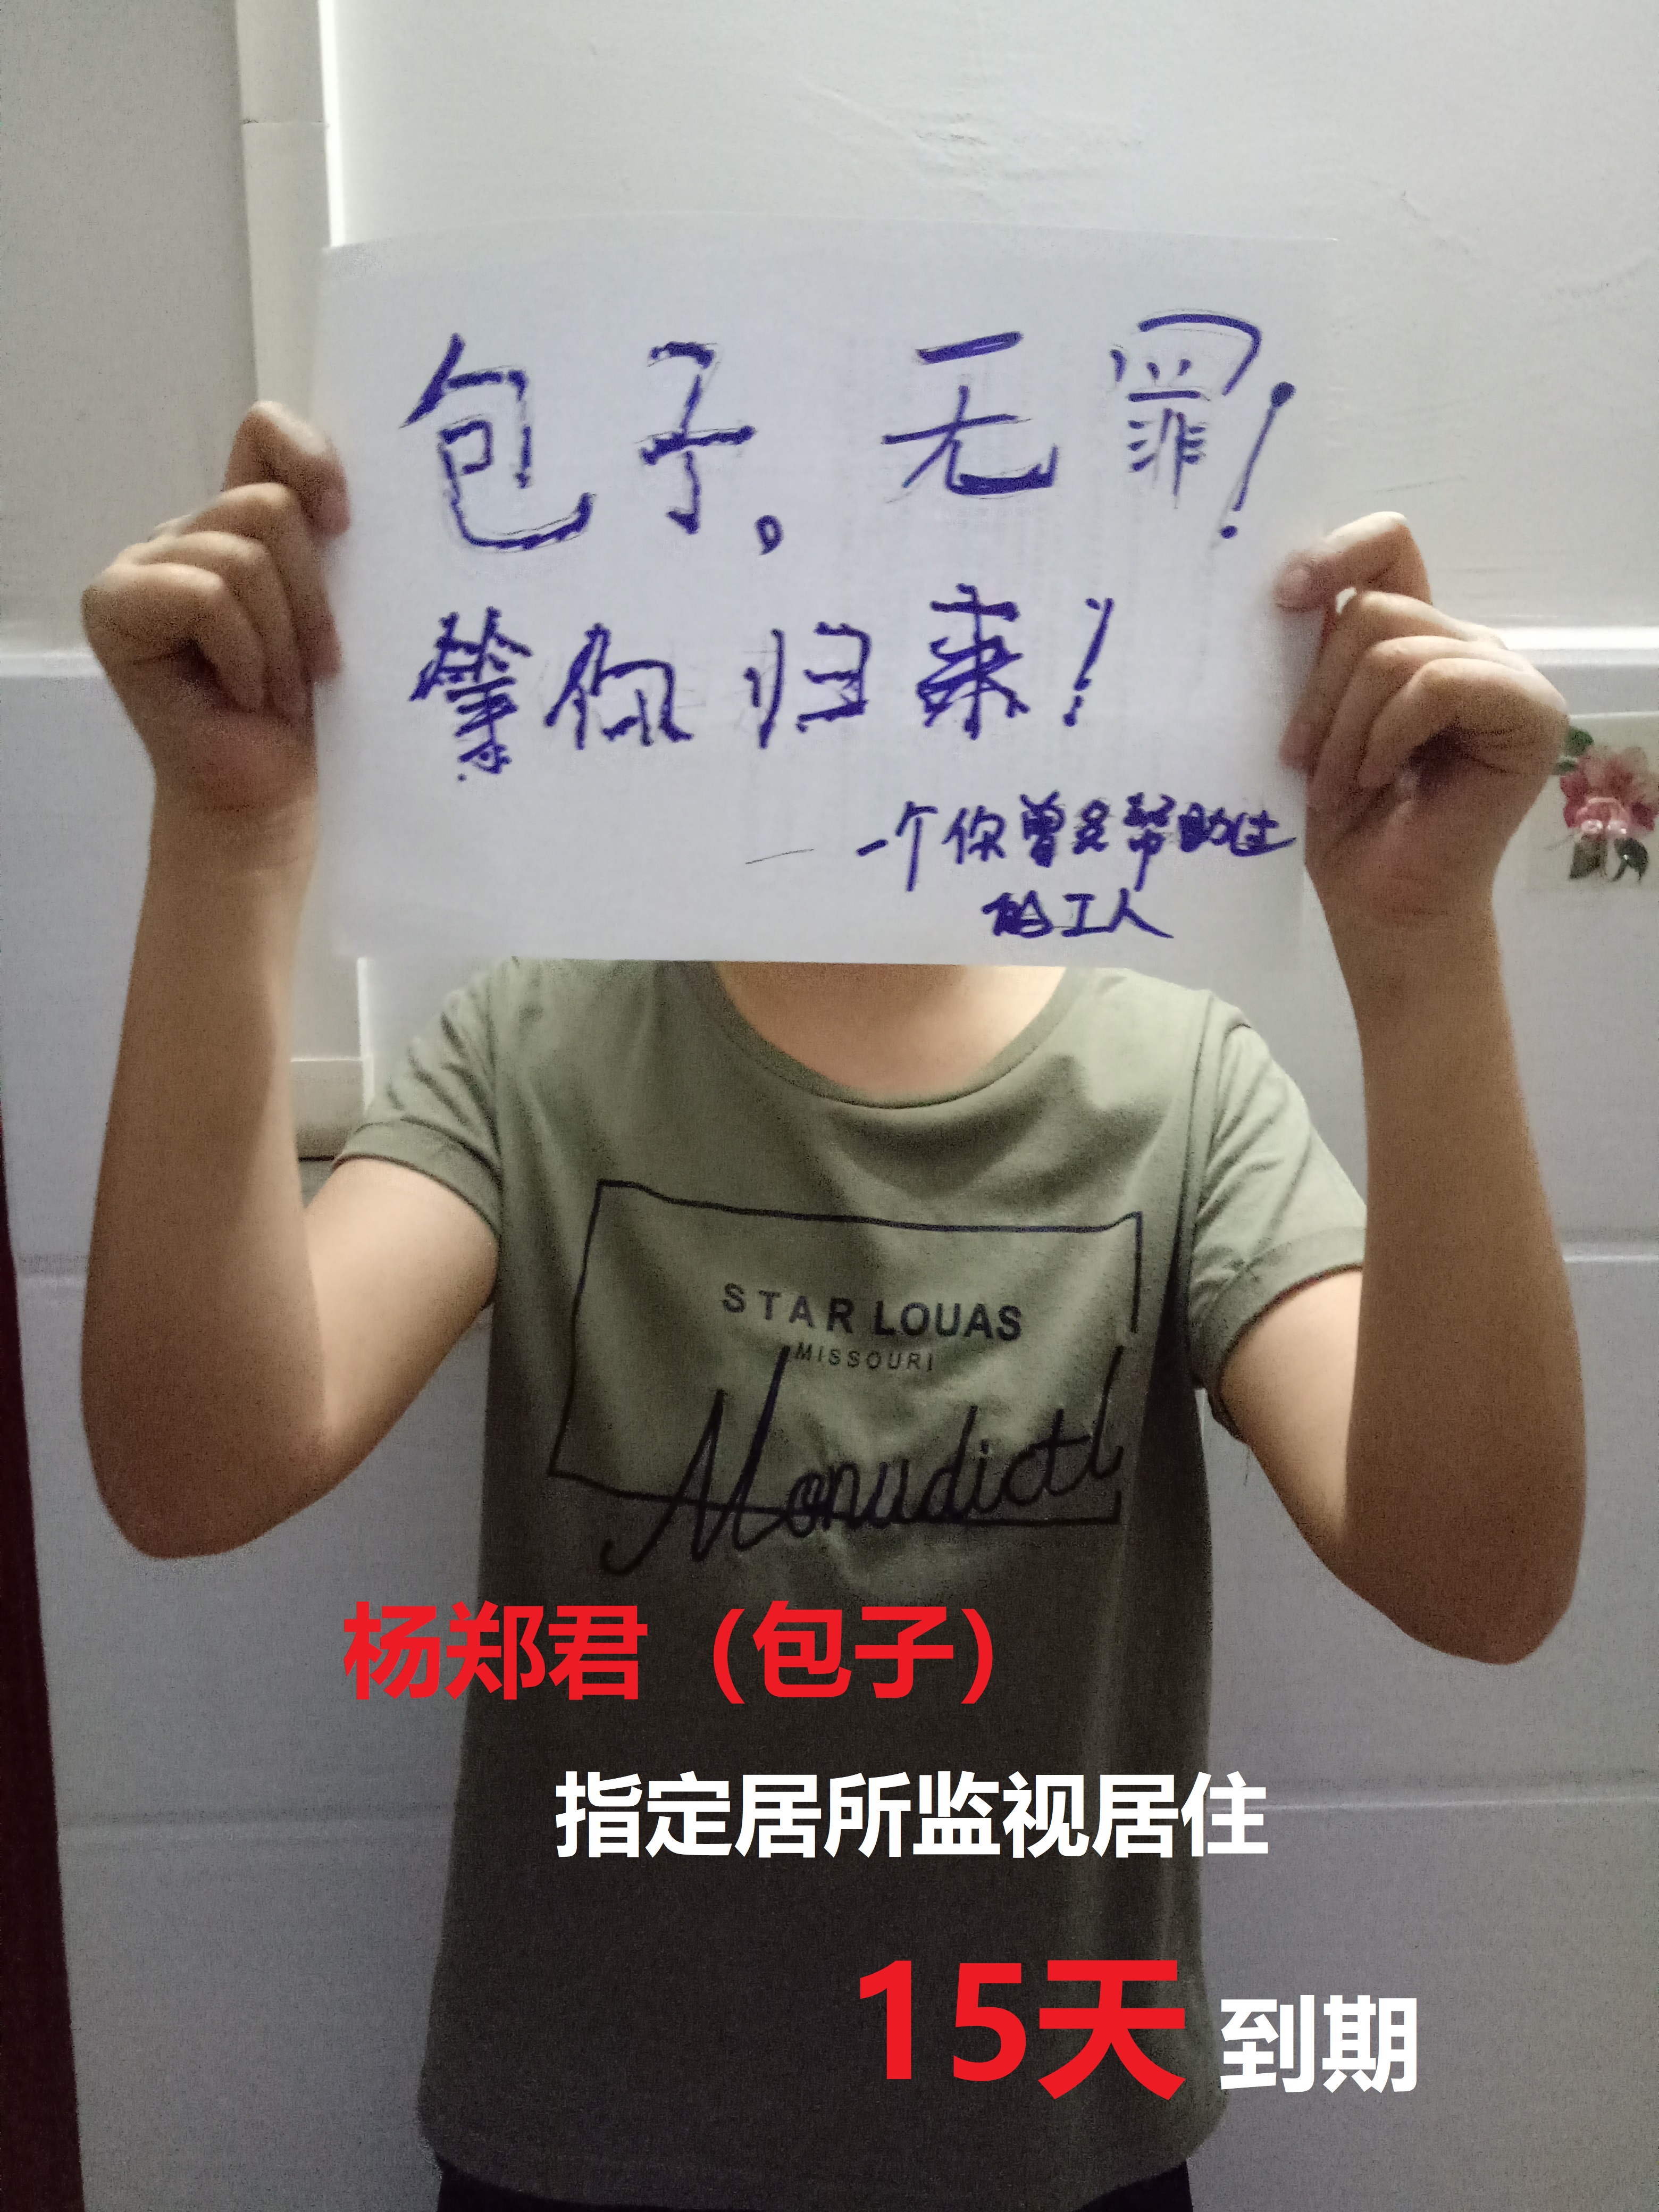 包子。无罪!
等你归来!
一个你曾经帮助过
的工人
STAR LOUAS
MISSOURI
Monudictl
杨郑君(包子)
指定居所监视居住
15天到期